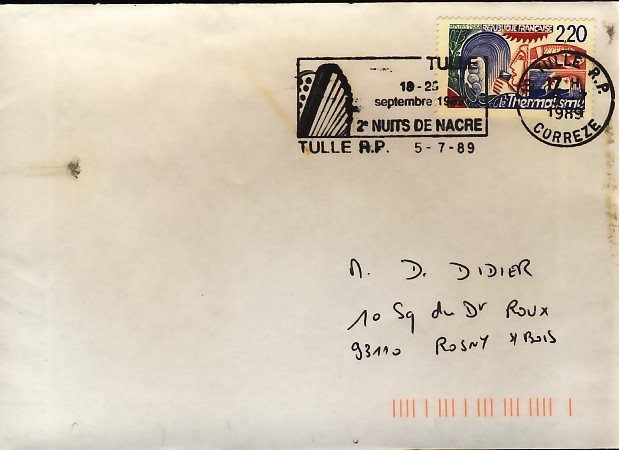 RÉPUBLIQUE FRANÇAISE 2,20
Thermalisme
TULLE
18 - 25
septembre 1989
2e NUITS DE NACRE
TULLE R.P. 5-7-89
TULLE R.P.
17 H
1989
CORREZE
M. D. DIDIER
10 Sq du Dr Roux
93110 ROSNY s/ BOIS